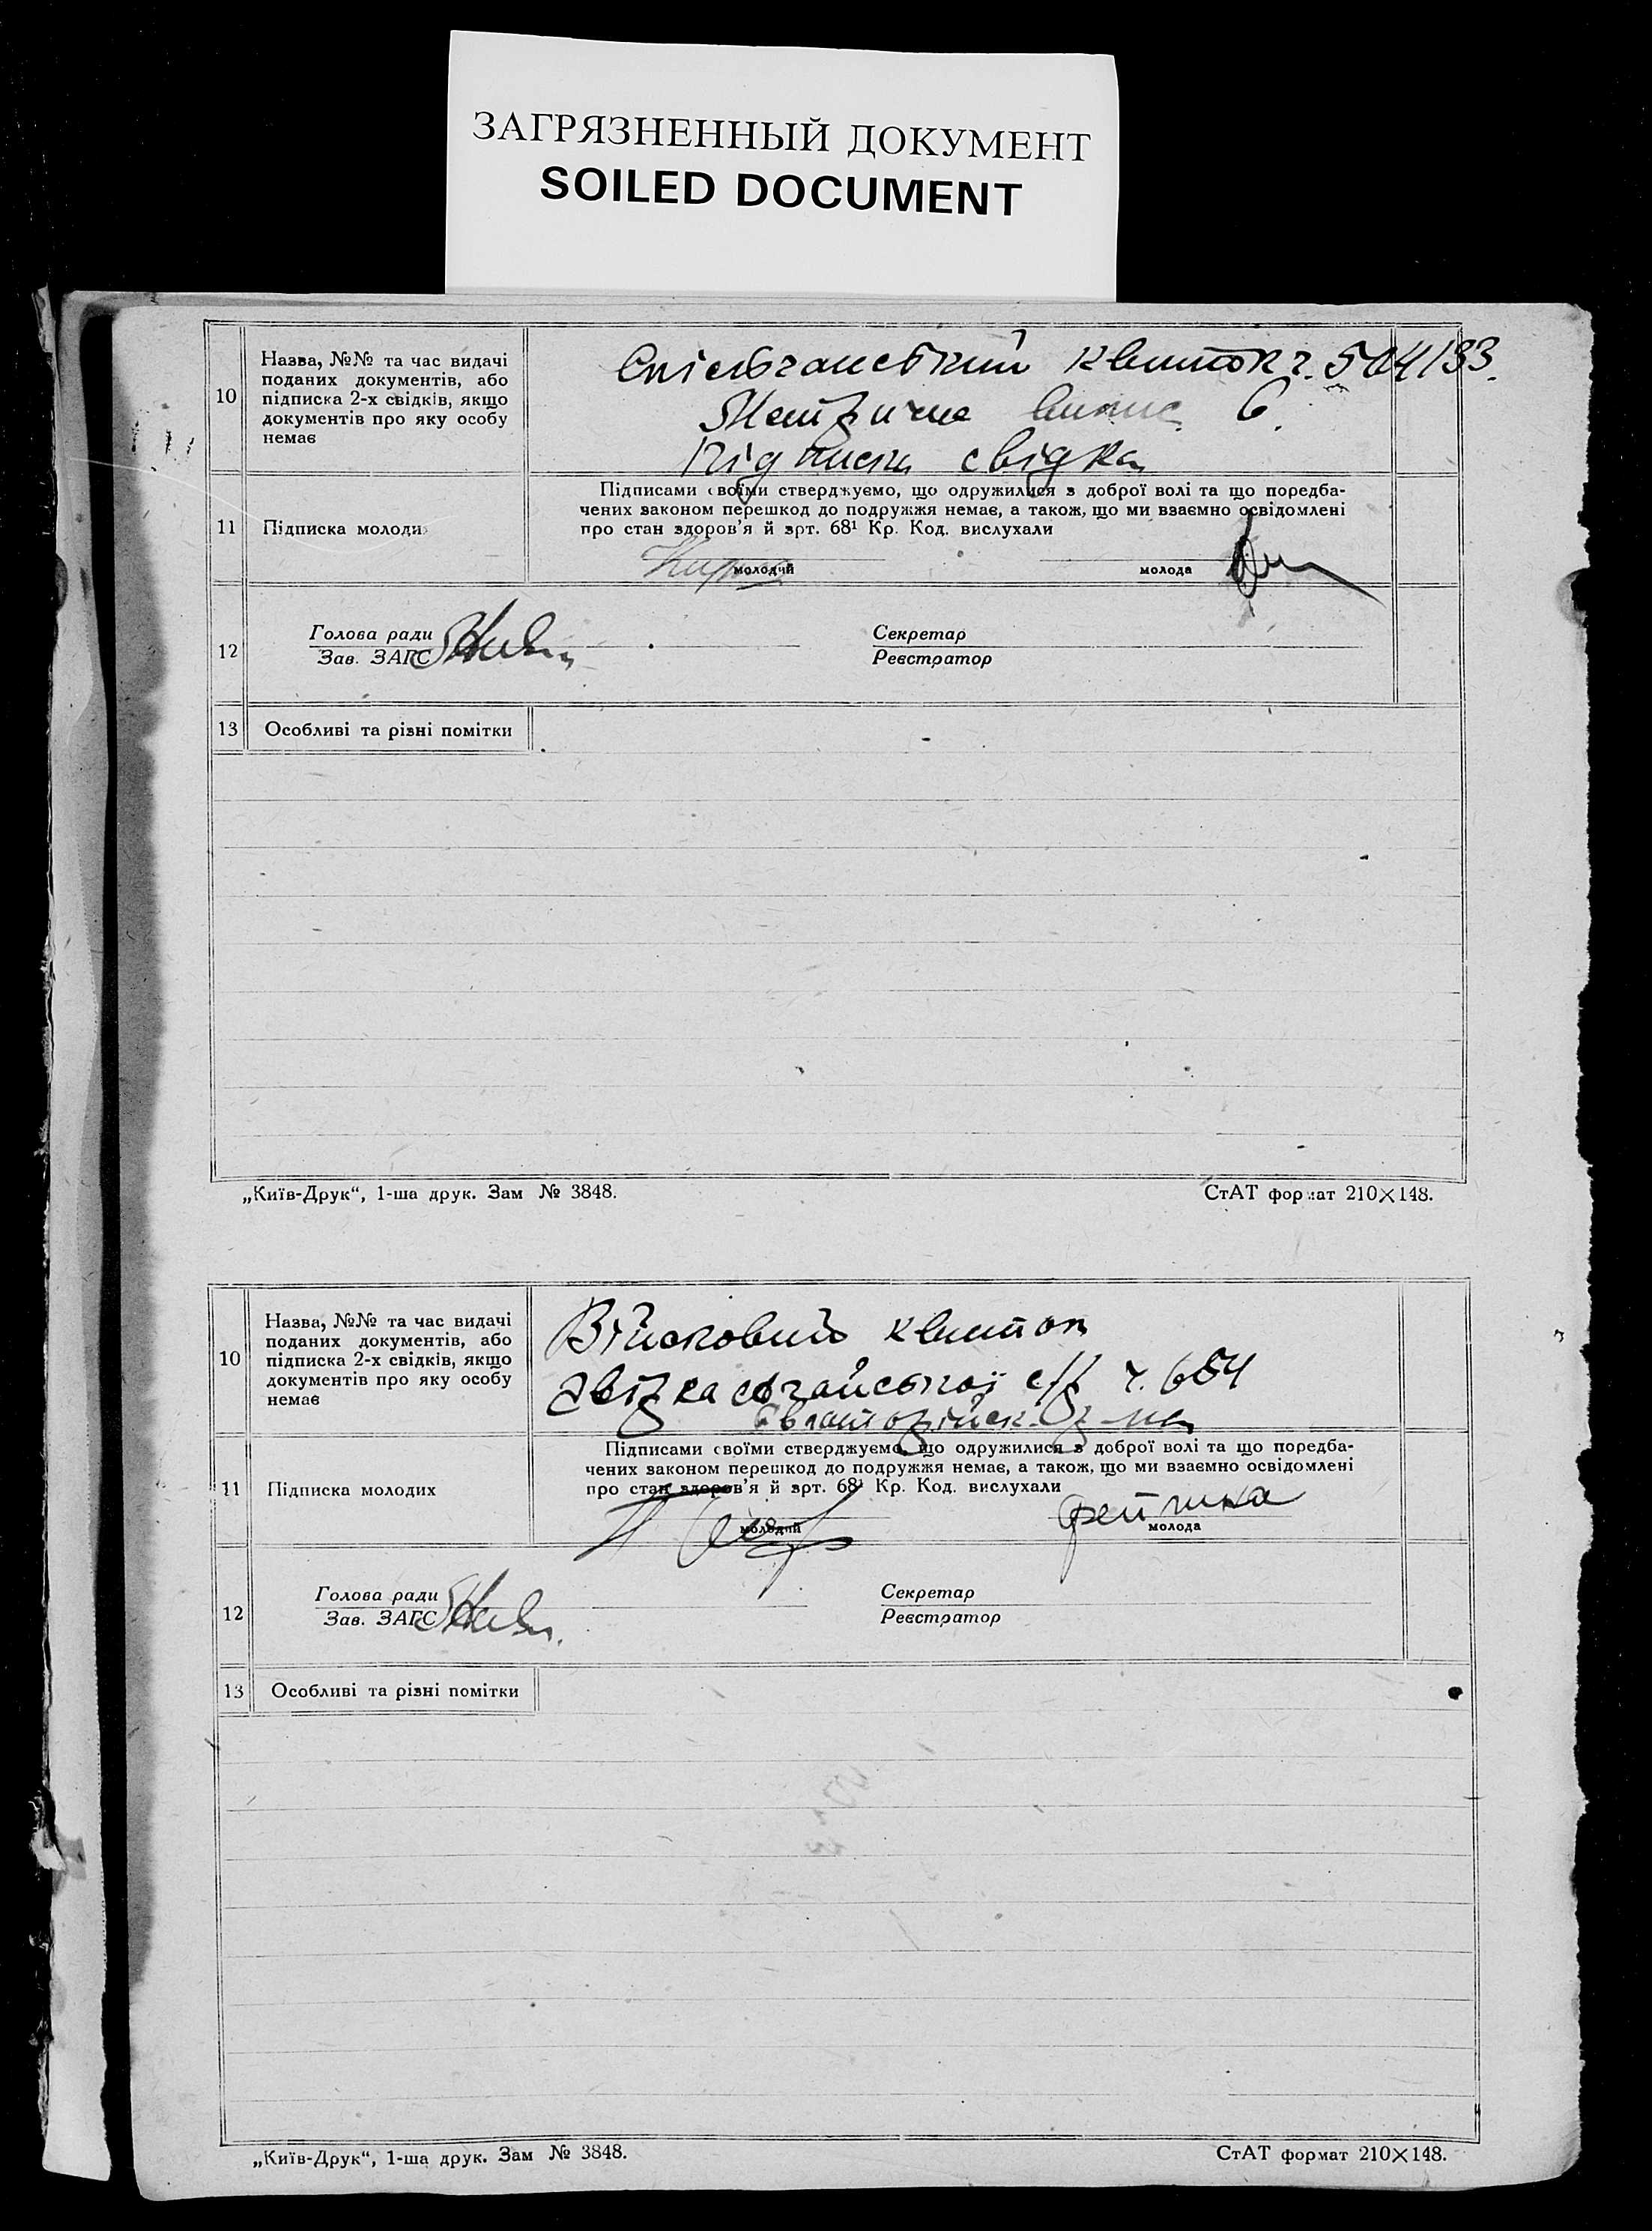 ЗАГРЯЗНЕННЫЙ ДОКУМЕНТ
SOILED DOCUMENT
10
Назва, №№ та час видачі
поданих документів, або
підписка 2-х свідків, якщо
документів про яку особу
немає
квиток ч. 504/33.
Метричне 6.
Підписка свідка
11
Підписка молодих
Підписами своїми стверджуємо, що одружилися з доброї волі та що поредба-
чених законом перешкод до подружжя немає, а також, що ми взаємно освідомлені
про стан здоров'я й зрт. 68¹ Кр. Код. вислухали
молодий
молода
12
Голова ради
Зав. ЗАГС
Секретар
Реєстратор
13
Особливі та різні помітки
„Київ-Друк“, 1-ша друк. Зам № 3848.
СтАТ формат 210×148.
10
Назва, №№ та час видачі
поданих документів, або
підписка 2-х свідків, якщо
документів про яку особу
немає
Військовий квиток
с/р ч. 654
11
Підписка молодих
Підписами своїми стверджуємо, що одружилися з доброї волі та що поредба-
чених законом перешкод до подружжя немає, а також, що ми взаємно освідомлені
про стан здоров'я й зрт. 68¹ Кр. Код. вислухали
молодий
молода
12
Голова ради
Зав. ЗАГС
Секретар
Реєстратор
13
Особливі та різні помітки
„Київ-Друк“, 1-ша друк. Зам № 3848.
СтАТ формат 210×148.